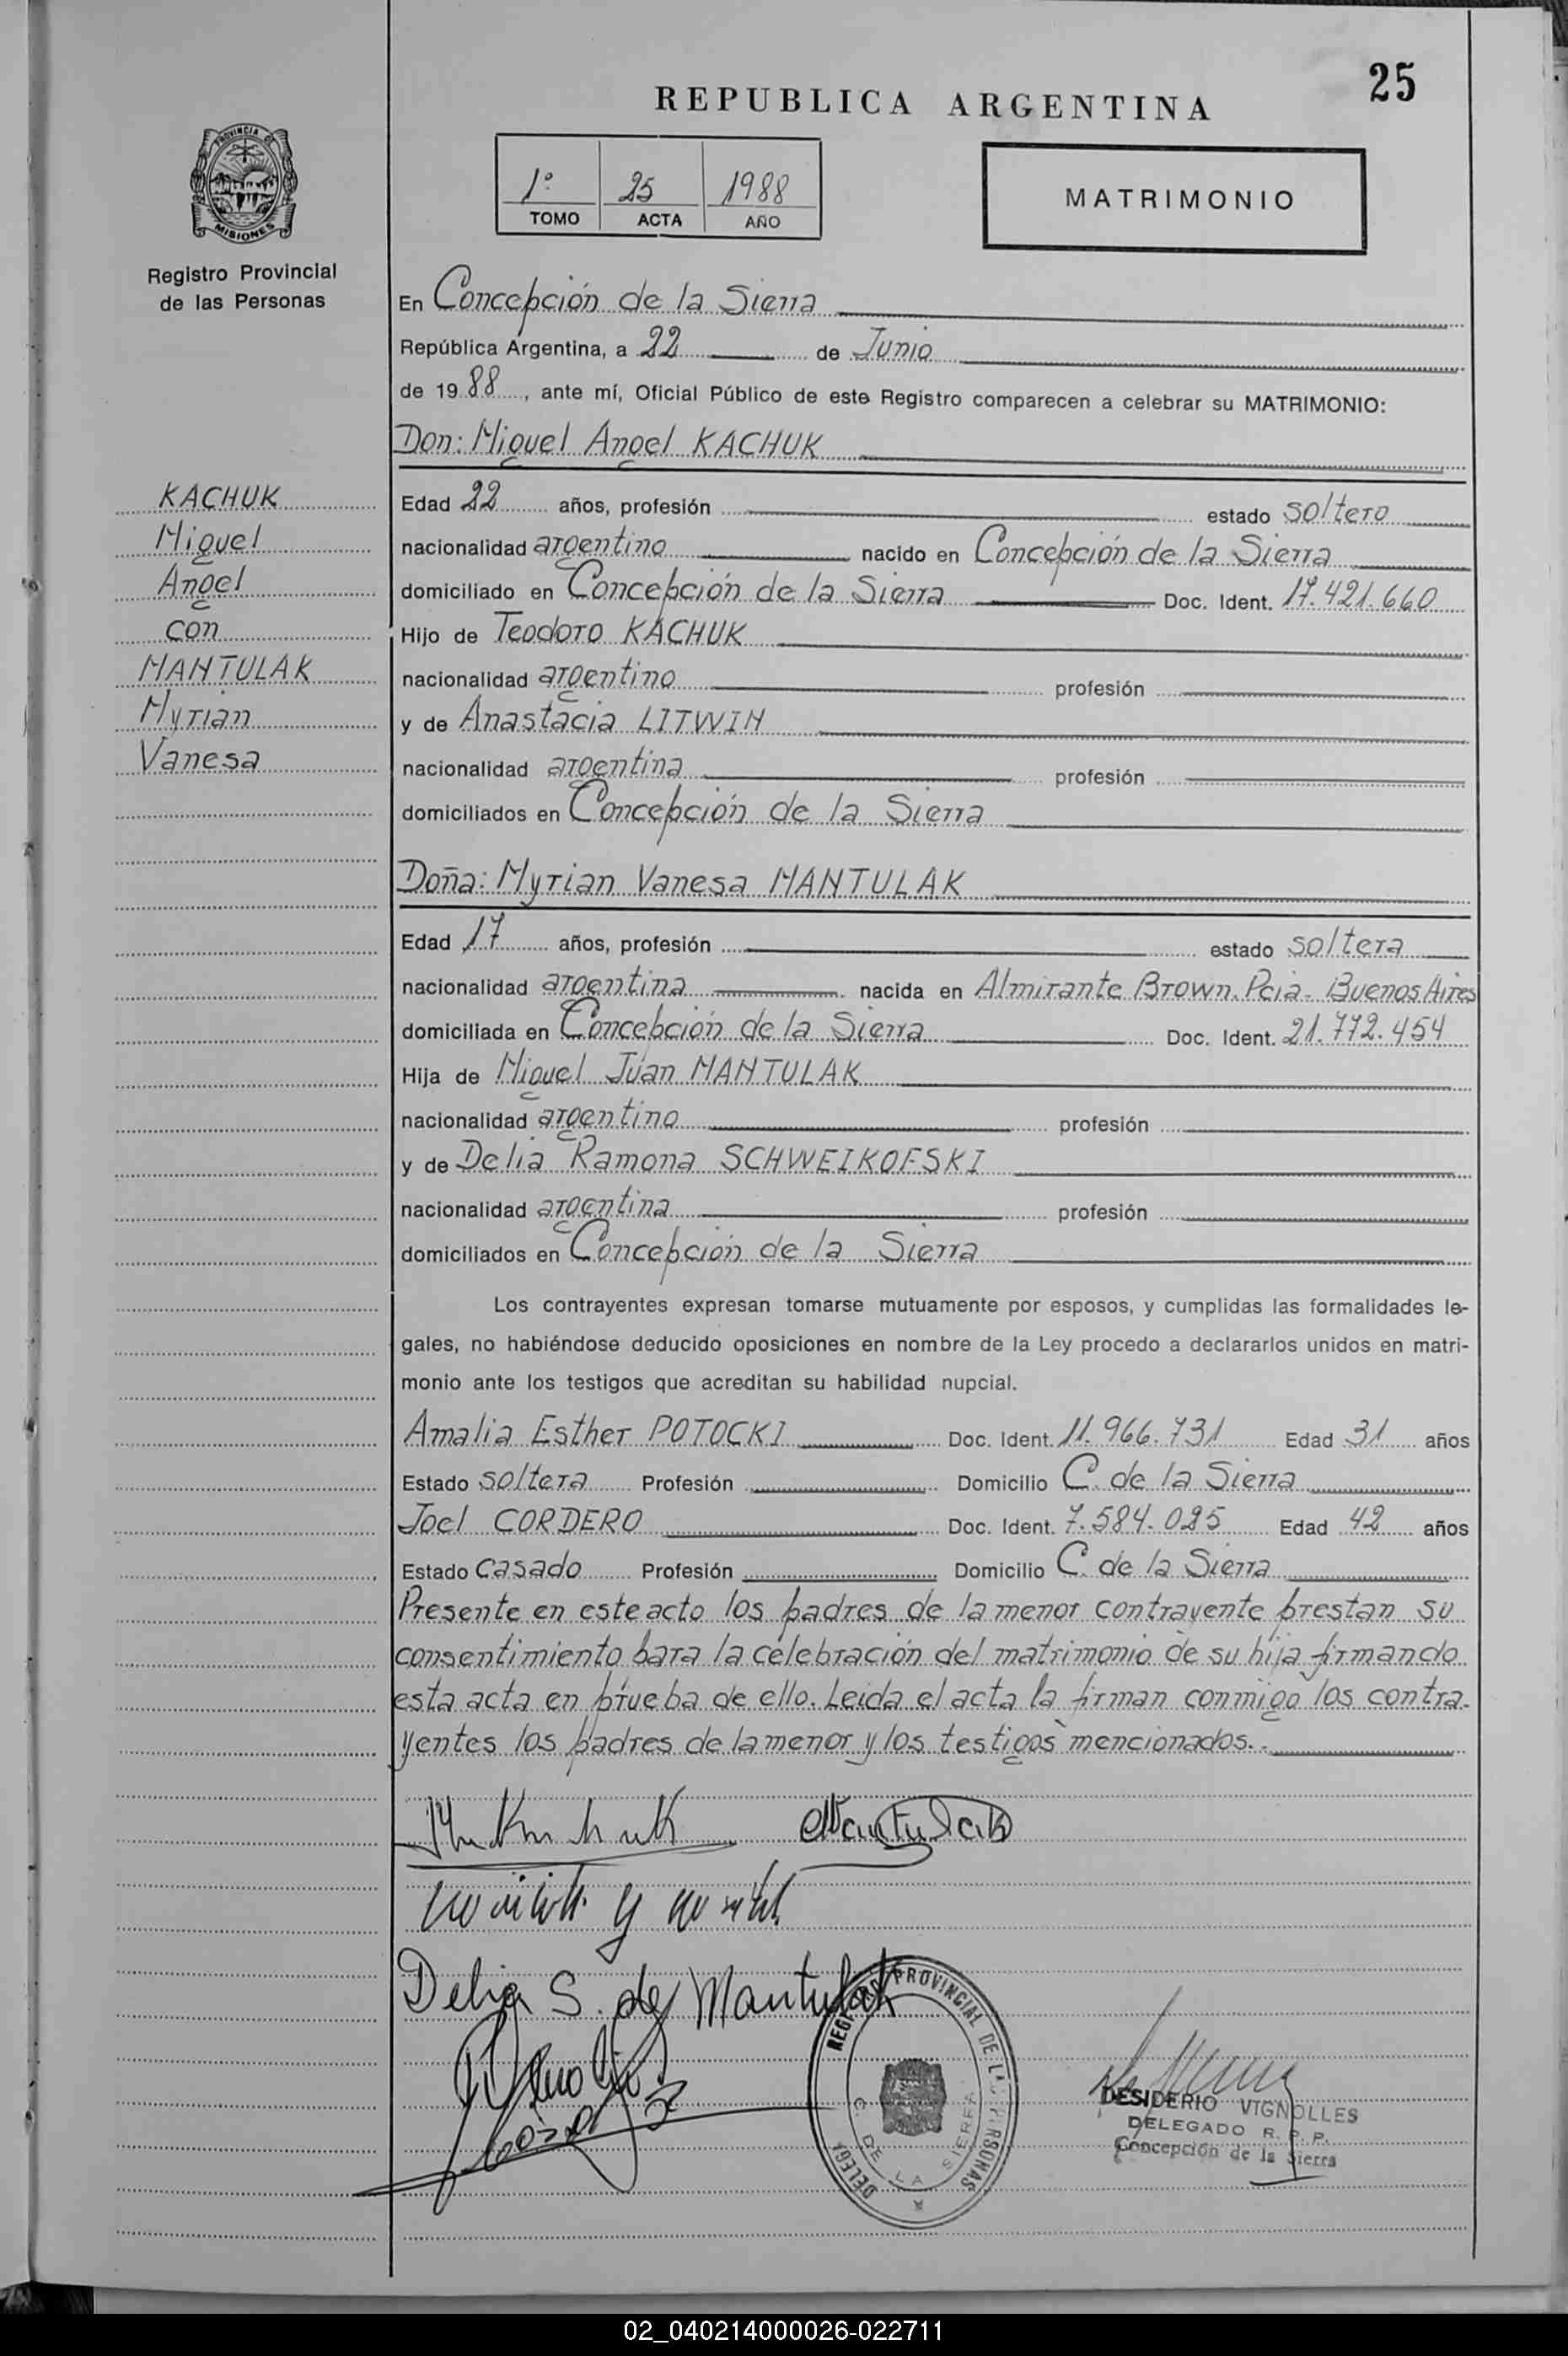 25
REPUBLICA ARGENTINA
1º 25 1988
TOMO ACTA AÑO
MATRIMONIO
PROVINCIA DE
MISIONES
Registro Provincial
de las Personas
En Concepción de la Sierra
República Argentina, a 22 de Junio
de 19 88, ante mí, Oficial Público de este Registro comparecen a celebrar su MATRIMONIO:
Don: Miguel Angel KACHUK
KACHUK
Miguel
Angel
con
MANTULAK
Myrian
Vanesa
Edad 22 años, profesión estado soltero
nacionalidad argentino nacido en Concepción de la Sierra
domiciliado en Concepción de la Sierra Doc. Ident. 17.421.660
Hijo de Teodoro KACHUK
nacionalidad argentino profesión
y de Anastacia LITWIN
nacionalidad argentina profesión
domiciliados en Concepción de la Sierra
Doña: Myrian Vanesa MANTULAK
Edad 17 años, profesión estado soltera
nacionalidad argentina nacida en Almirante Brown. Pcia. Buenos Aires
domiciliada en Concepción de la Sierra Doc. Ident. 21.772.454
Hija de Miguel Juan MANTULAK
nacionalidad argentino profesión
y de Delia Ramona SCHWEIKOFSKI
nacionalidad argentina profesión
domiciliados en Concepción de la Sierra
Los contrayentes expresan tomarse mutuamente por esposos, y cumplidas las formalidades le-
gales, no habiéndose deducido oposiciones en nombre de la Ley procedo a declararlos unidos en matri-
monio ante los testigos que acreditan su habilidad nupcial.
Amalia Esther POTOCKI Doc. Ident. 11.966.731 Edad 31 años
Estado soltera Profesión Domicilio C. de la Sierra
Joel CORDERO Doc. Ident. 7.584.025 Edad 42 años
Estado casado Profesión Domicilio C. de la Sierra
Presente en este acto los padres de la menor contrayente prestan su
consentimiento para la célebración del matrimonio de su hija firmando
esta acta en prueba de ello. Leida el acta la firman conmigo los contra-
yentes los padres de la menor y los testigos mencionados.-
Mantulak
Delia S. de Mantulak
REGISTRO PROVINCIAL DE LAS PERSONAS
C. DE LA SIERRA
DESIDERIO VIGNOLLES
DELEGADO R. P. P.
Concepción de la Sierra
02_040214000026-022711